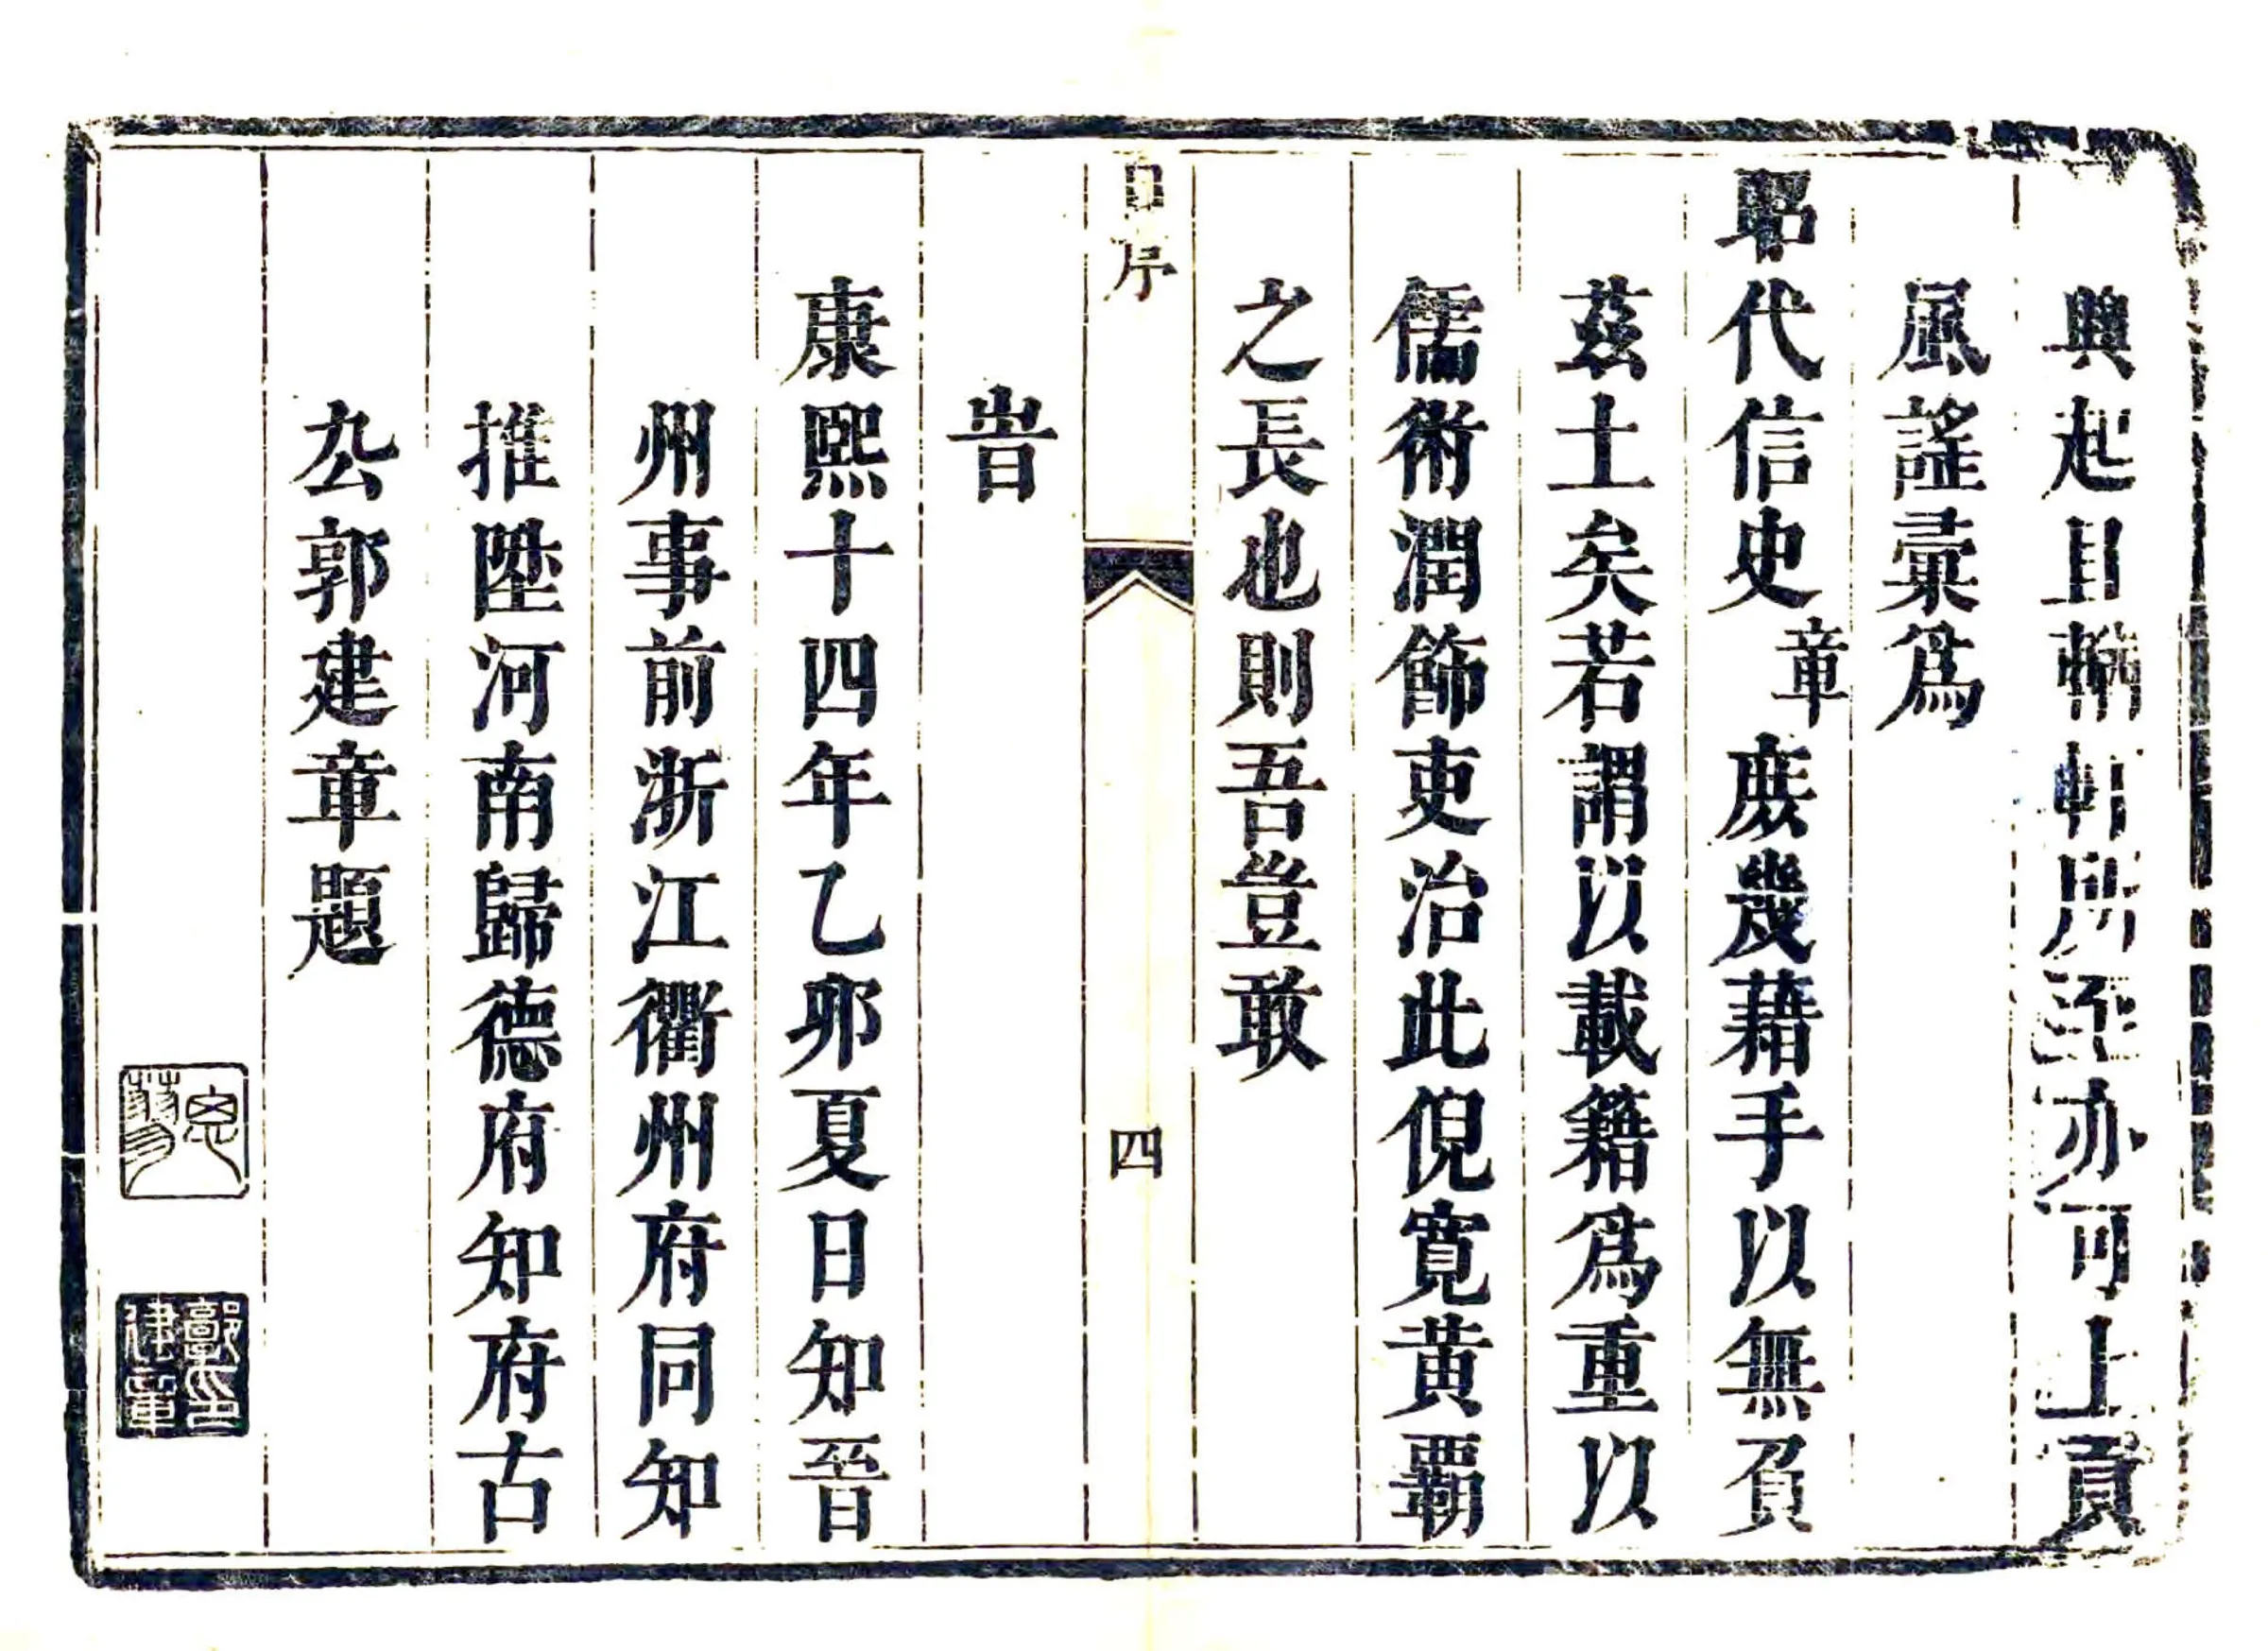 興起且輶軒所至亦可上貢
風謠彚爲
昭代信史章庻幾藉手以無負
茲土矣若謂以載籍爲重以
儒術潤飾吏治此倪寛黄覇
之長也則吾豈敢
自序
四
旹
康熙十四年乙卯夏日知晉
州事前浙江衢州府同知
推陞河南歸德府知府古
厷郭建章題
郭印建章